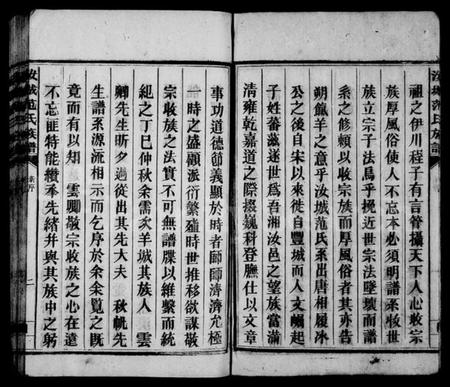 祖之伊川程子有言管攝天下人心收宗
族厚風俗使人不忘本必須明譜系收世
族立宗子法烏乎挽近世宗法墜壞而譜
系之修賴以收宗族而厚風俗者其亦告
朔餼羊之意乎汝城范氏系出唐相履冰
公之後自宋以來徙自豐城而人文崛起
子姓蕃滋遂世爲吾湘汝邑之望族當滿
清雍乾嘉道之際掇巍科登膴仕以文章
事功道德節義顯於時者師師濟濟尤極
一時之盛顧派衍繁殖時世推移欲謀敬
宗收族之法實不可無譜牒以維繫而統
紀之丁巳仲秋余需次羊城其族人 雲
卿先生昕夕過從出其先大夫 秋帆先
生譜系源流相示而乞序於余余覽之既
竟而有以知 雲卿敬宗收族之心在遠
不忘匪特能纘承先緒并與其族中之躬
汝城范氏族譜
序
二